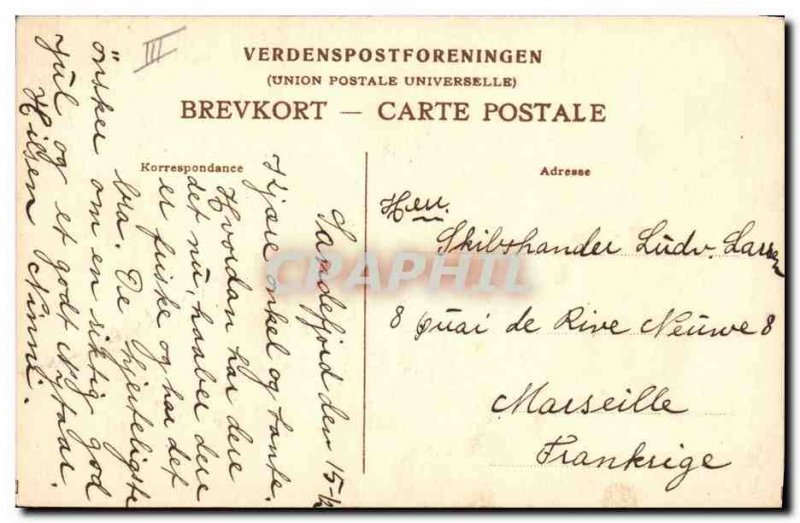 III
VERDENSPOSTFORENINGEN
(UNION POSTALE UNIVERSELLE)
BREVKORT — CARTE POSTALE
Korrespondance
Adresse
Sandefjord den 15-12
Kjære onkel og tante.
Hvordan har dere
det nu, haaber dere
er friske og har det
bra. De hjerteligste
önsker om en riktig god
jul og et godt Nytaar.
Hilsen Ninni.
Herr.
Skibshandler Ludv. Larsen
8 Quai de Rive Neuwe 8
Marseille
Frankrige
CPAPHIL